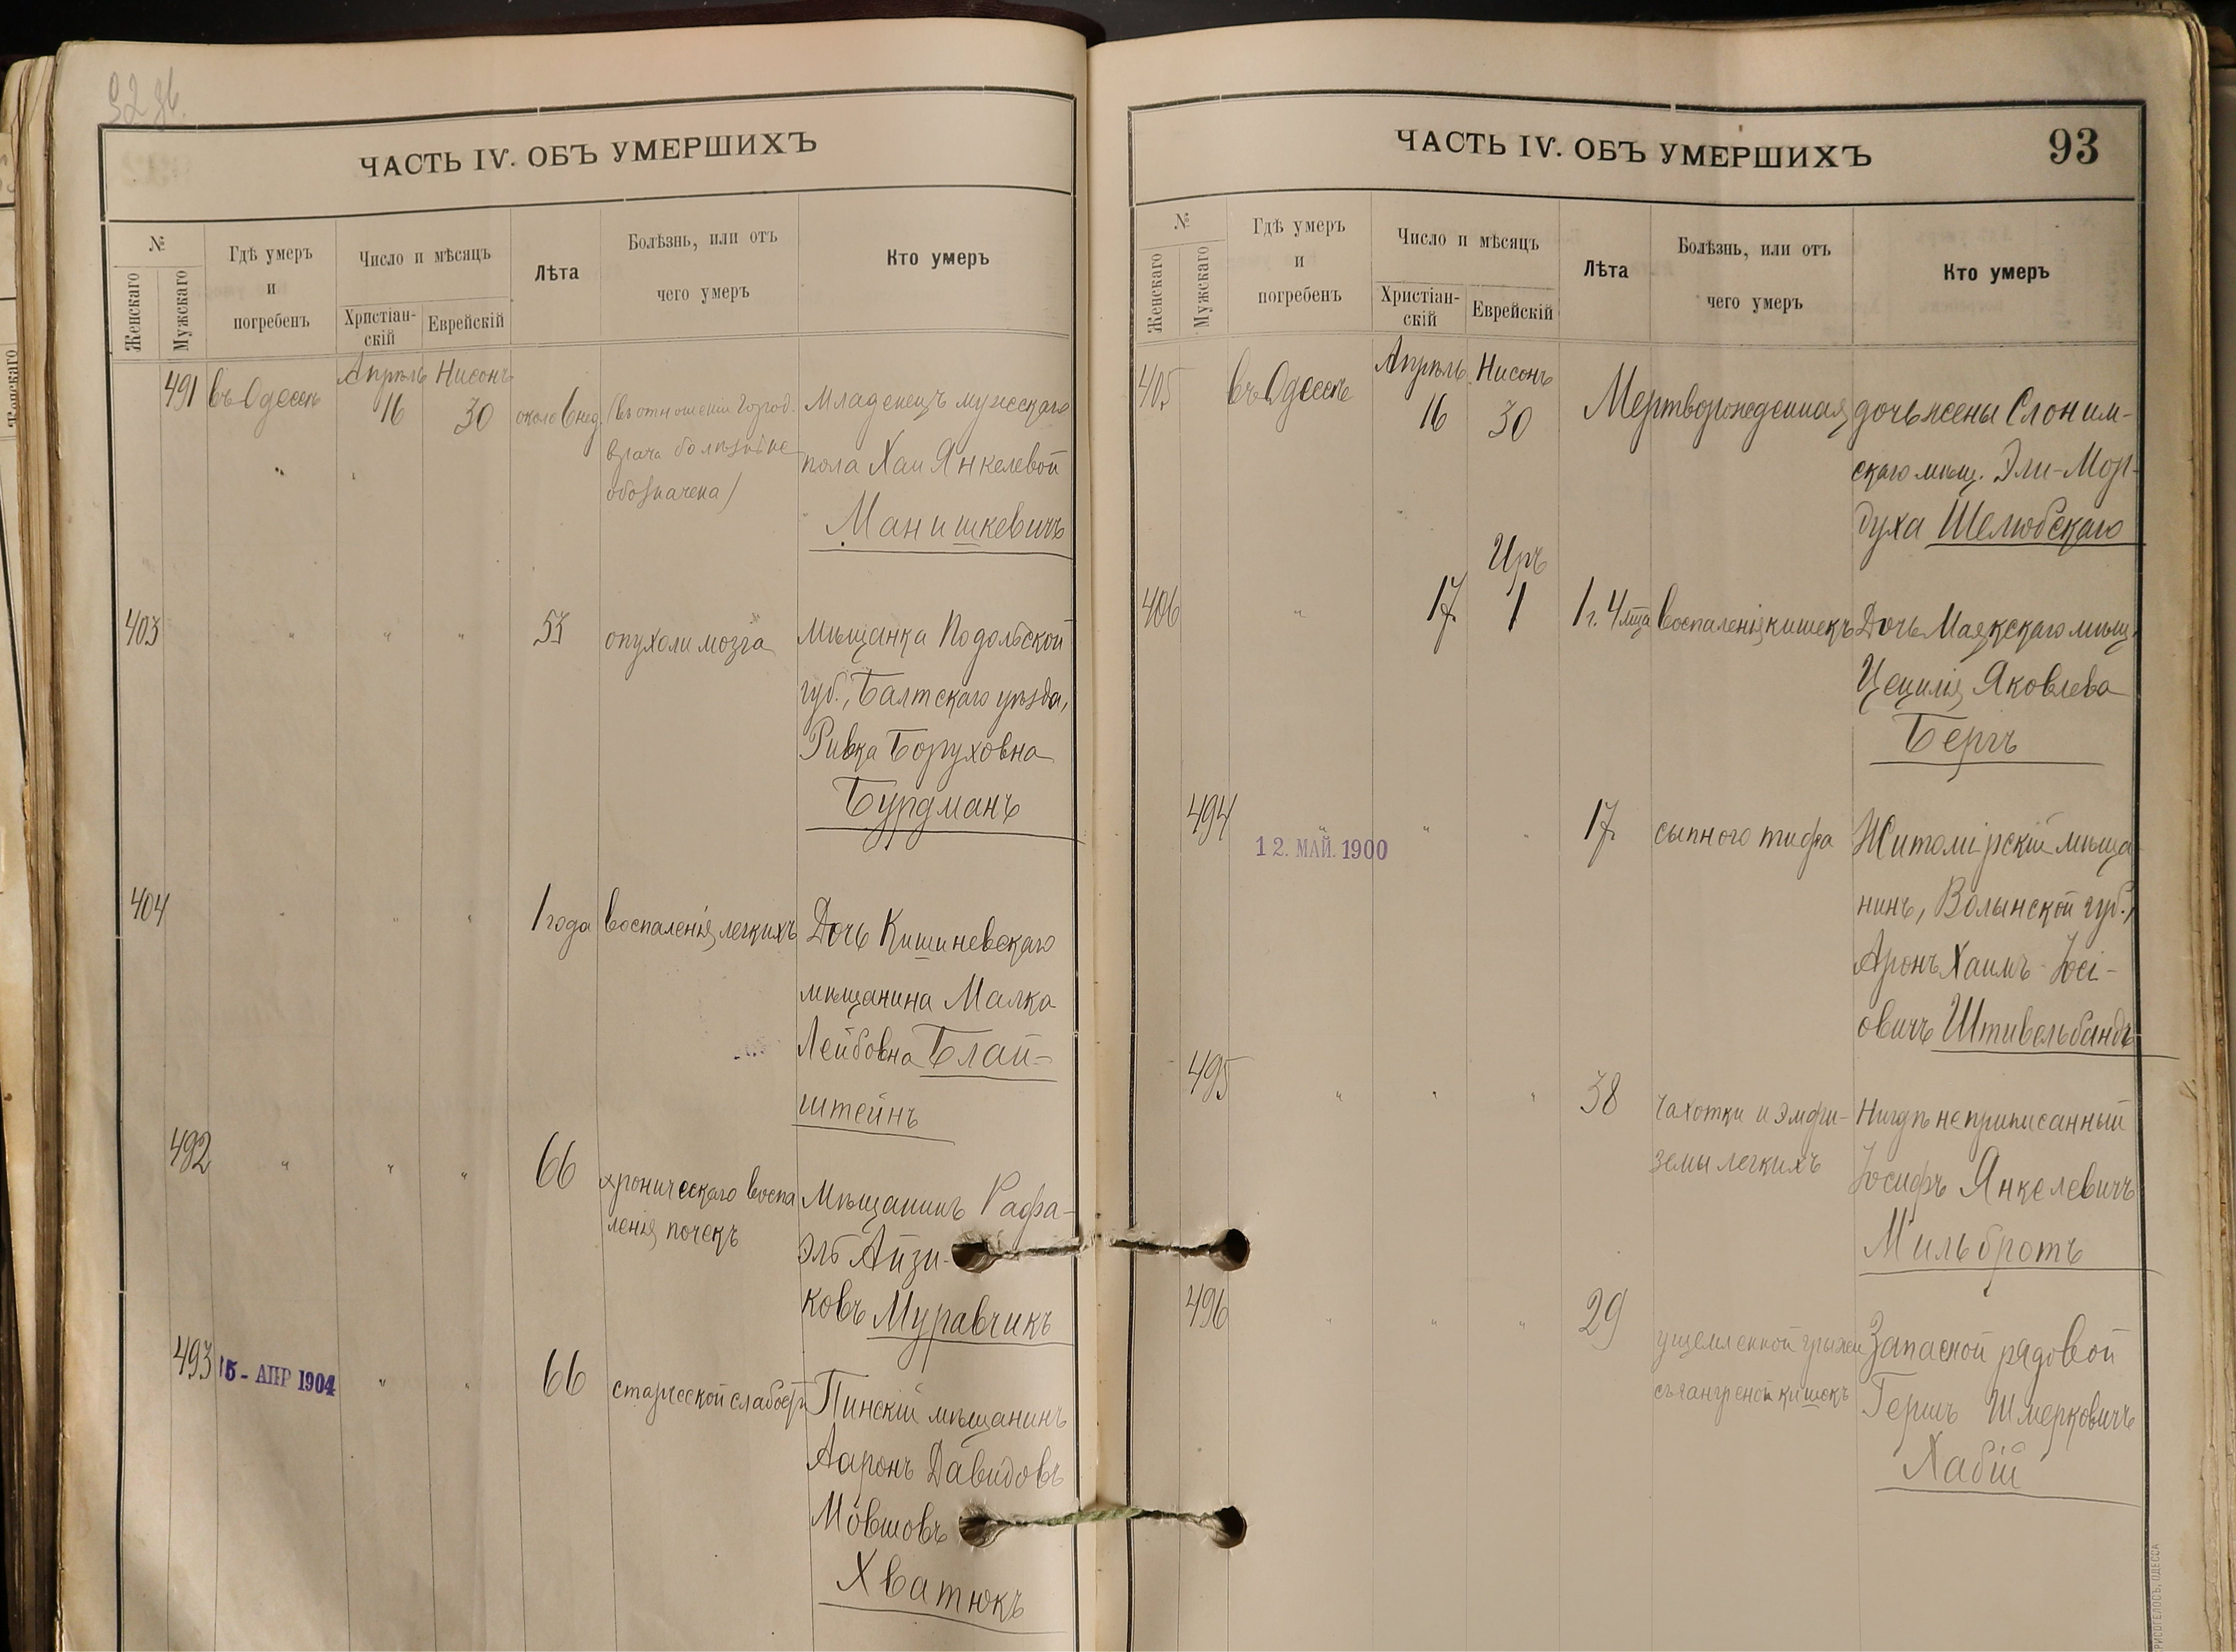 92 об.
ЧАСТЬ IV. ОБЪ УМЕРШИХЪ
№
Женскаго
Мужскаго
Гдѣ умеръ
и
погребенъ
Число и мѣсяцъ
Христіан-
скій
Еврейскій
Лѣта
Болѣзнь, или отъ
чего умеръ
Кто умеръ
491 въ Одессѣ Апрѣль 16 Нисонъ 30 около 6 нед. (въ отношеніи город. Младенецъ мужескаго
врача болѣзнь не пола Хаи Янкелевой
обозначена) Манишкевичъ
403 " " " 53 опухоли мозга Мѣщанка Подольской
губ., Балтскаго уѣзда,
Ривка Боруховна
Бурдманъ
404 " " " 1 года воспаленія легкихъ Дочь Кишиневскаго
мѣщанина Малка
Лейбовна Блай-
штейнъ
492 " " " 66 хроническаго воспа Мѣщанинъ Рафа-
ленія почекъ эль Айзи-
ковъ Муравчикъ
493 15 - АПР 1904 " " 66 старческой слабости Пинскій мѣщанинъ
Ааронъ Давидовъ
Мовшовъ
Хватюкъ
ЧАСТЬ IV. ОБЪ УМЕРШИХЪ 93
№
Женскаго
Мужскаго
Гдѣ умеръ
и
погребенъ
Число и мѣсяцъ
Христіан-
скій
Еврейскій
Лѣта
Болѣзнь, или отъ
чего умеръ
Кто умеръ
405 въ Одессѣ Апрѣль 16 Нисонъ 30 Мертворожденная дочь жены Слоним-
скаго мѣщ. Эли-Мор-
духа Шелюбскаго
Иръ
406 " 17 1 1 г. 4 мѣца воспаленія кишекъ Дочь Маякскаго мѣщ.
Цецилія Яковлева
Бергъ
494 " " " 17 сыпного тифа Житомірскій мѣща
12. МАЙ. 1900
нинъ, Волынской губ.,
Аронъ Хаимъ-Іосі-
овичъ Штивельбандъ
495 " " " 38 чахотки и эмфи- Нигдѣ неприписанный
земы легкихъ Іосифъ Янкелевичъ
Мильбротъ
496 " " " 29 ущемленной грыжи Запасной рядовой
съ гангреной кишокъ Гершъ Шмерковичъ
Хабій